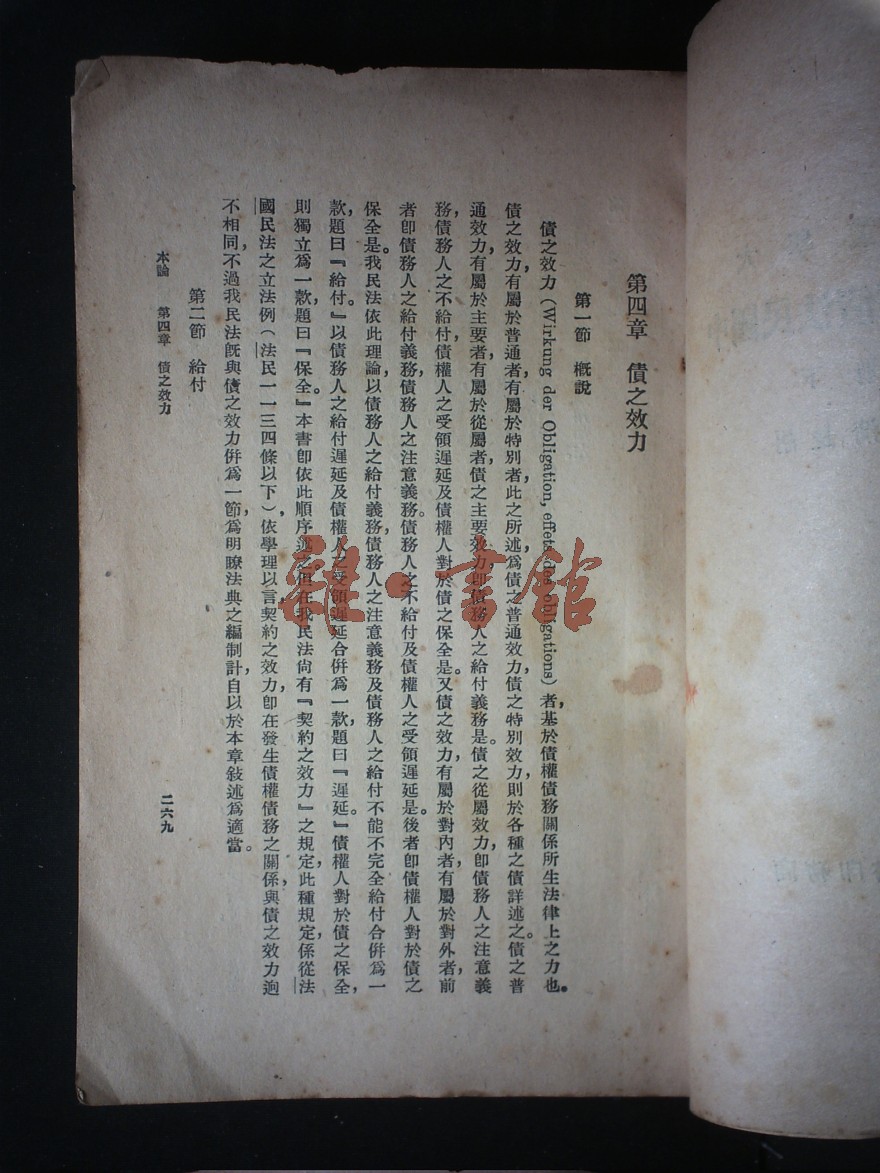 第四章　債之效力
第一節　概說
債之效力(Wirkung der Obligation, effets des obligations)者，基於債權債務關係所生法律上之力也。
債之效力，有屬於普通者，有屬於特別者，此之所述，爲債之普通效力，債之特別效力，則於各種之債詳述之。債之普
通效力，有屬於主要者，有屬於從屬者，債之主要效力，即債務人之給付義務是。債之從屬效力，即債務人之注意義
務，債務人之不給付，債權人之受領遲延及債權人對於債之保全是。又債之效力，有屬於對內者，有屬於對外者，前
者即債務人之給付義務，債務人之注意義務。債務人之不給付及債權人之受領遲延是。後者即債權人對於債之
保全是。我民法依此理論，以債務人之給付義務，債務人之注意義務及債務人之給付不能不完全給付合併爲一
款，題曰『給付。』以債務人之給付遲延及債權人之受領遲延合併爲一款，題曰『遲延。』債權人對於債之保全，
則獨立爲一款，題曰『保全。』本書即依此順序述之。但在我民法尙有『契約之效力』之規定，此種規定，係從法
國民法之立法例(法民一一三四條以下)，依學理以言，契約之效力，即在發生債權債務之關係，與債之效力迥
不相同，不過我民法旣與債之效力併爲一節，爲明瞭法典之編制計，自以於本章敍述爲適當。
第二節　給付
本論　第四章　債之效力
二六九
雜·書館